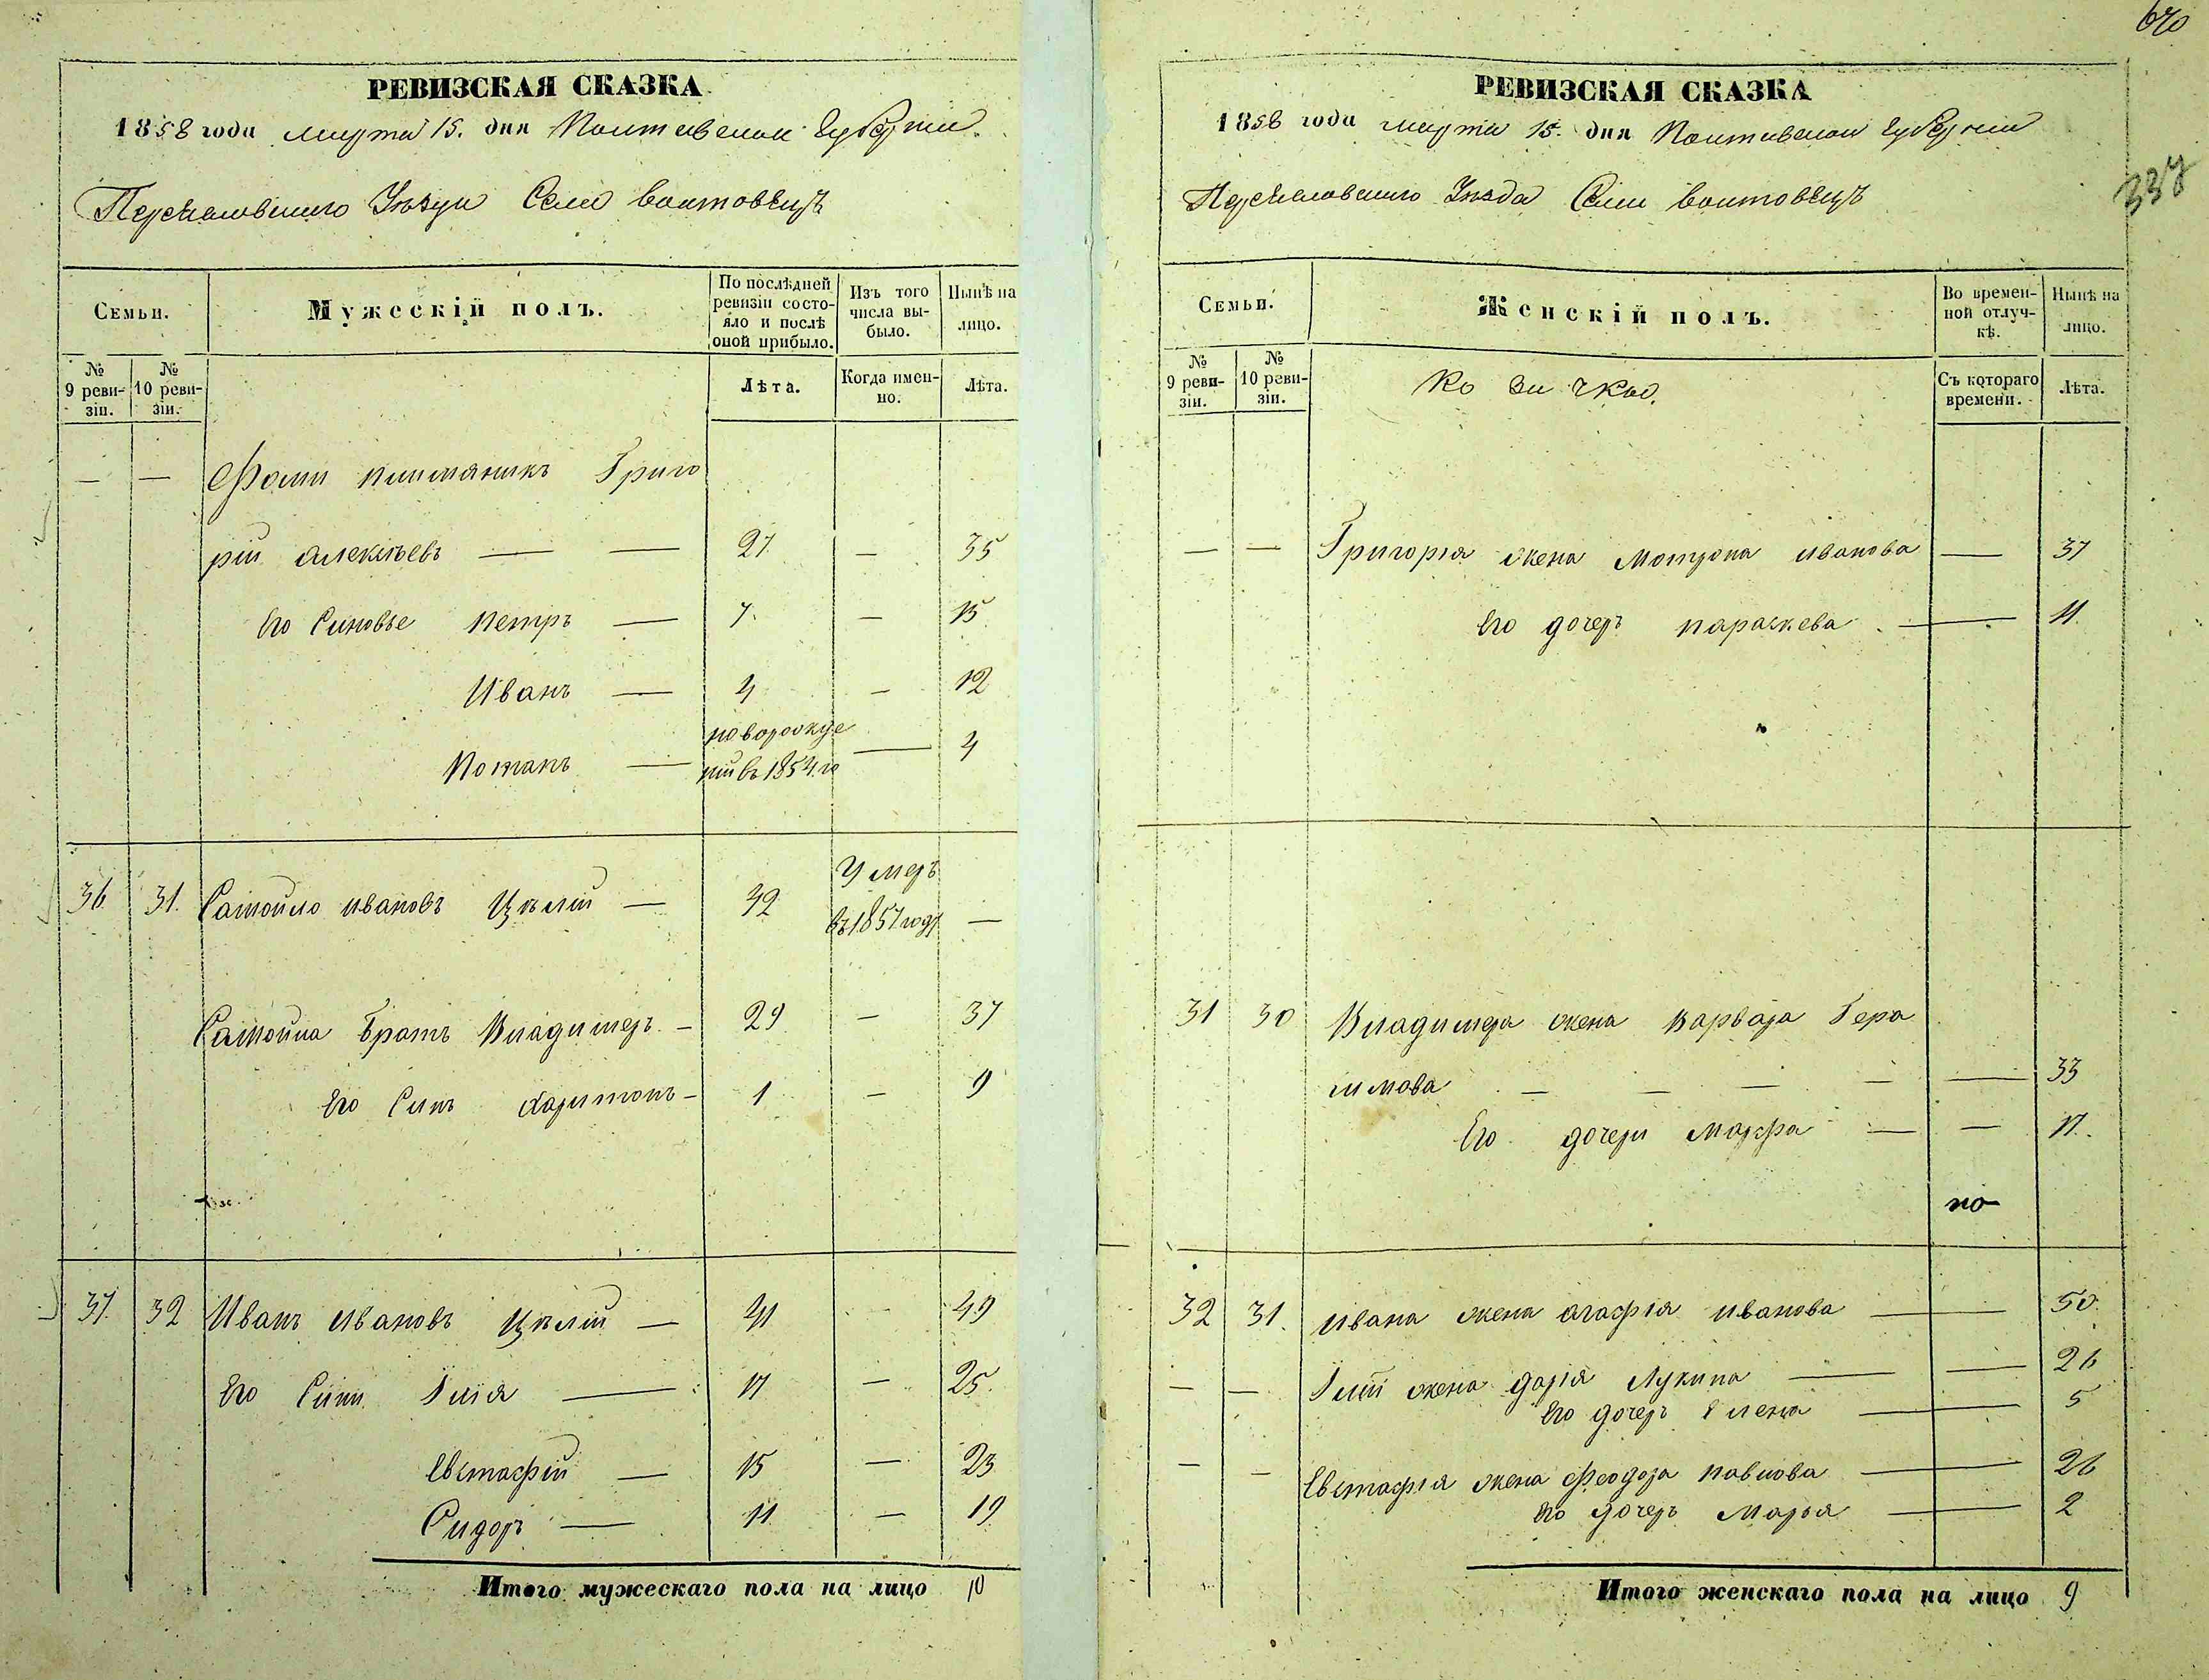 РЕВИЗСКАЯ СКАЗКА
1858 года марта 15. дня Полтавской Губерніи.
Переяславскаго Уезда Села Воитовецъ
Семьи.
Мужескій полъ.
По послѣдней ревизіи состояло и послѣ оной прибыло.
Изъ того числа выбыло.
Нынѣ на лицо.
№ 9 ревизіи.
№ 10 ревизіи.
Лѣта.
Когда именно.
Лѣта.
— — Фомы племяникъ Григо
рій алексѣевъ — — 27. — 35
Его Синовье Петръ — 7. — 15
Иванъ — 4 — 12
Потапъ — новорожде
ній въ 1854 го — 4
Умеръ
36 31. Самойло ивановъ Цѣлій — 42 въ 1857 году —
Самойла братъ Владимеръ — 29 — 37
Его Синъ Харитонъ — 1 — 9
37. 32 Иванъ ивановъ Цѣлій — 41 49
Его Сини Илія — 17 — 25.
Евстафій — 15 — 23
Сидоръ — 11 — 19
Итого мужескаго пола на лицо 10
670
РЕВИЗСКАЯ СКАЗКА
1858 года марта 15. дня Полтавской Губерніи
337
Переяславскаго Уезда Села Воитовецъ
Семьи.
Женскій полъ.
Во временной отлучкѣ.
Нынѣ на лицо.
№ 9 ревизіи.
№ 10 ревизіи.
Ко за чков.
Съ котораго времени.
Лѣта.
— — Григорія жена Мотрона иванова — 37
Его дочеръ параскева — 11
31 30 Владимера жена Варвара Гера
симова — — — — — 33
Его дочери Марфа — — 17.
но
32 31. ивана жена агафія иванова — 50.
— — Іліи жена дарія Лукина — 26
Его дочеръ Елена — 5
— — Евстафія жена Феодора павлова — 26
Его дочеръ Марья — 2
Итого женскаго пола на лицо 9